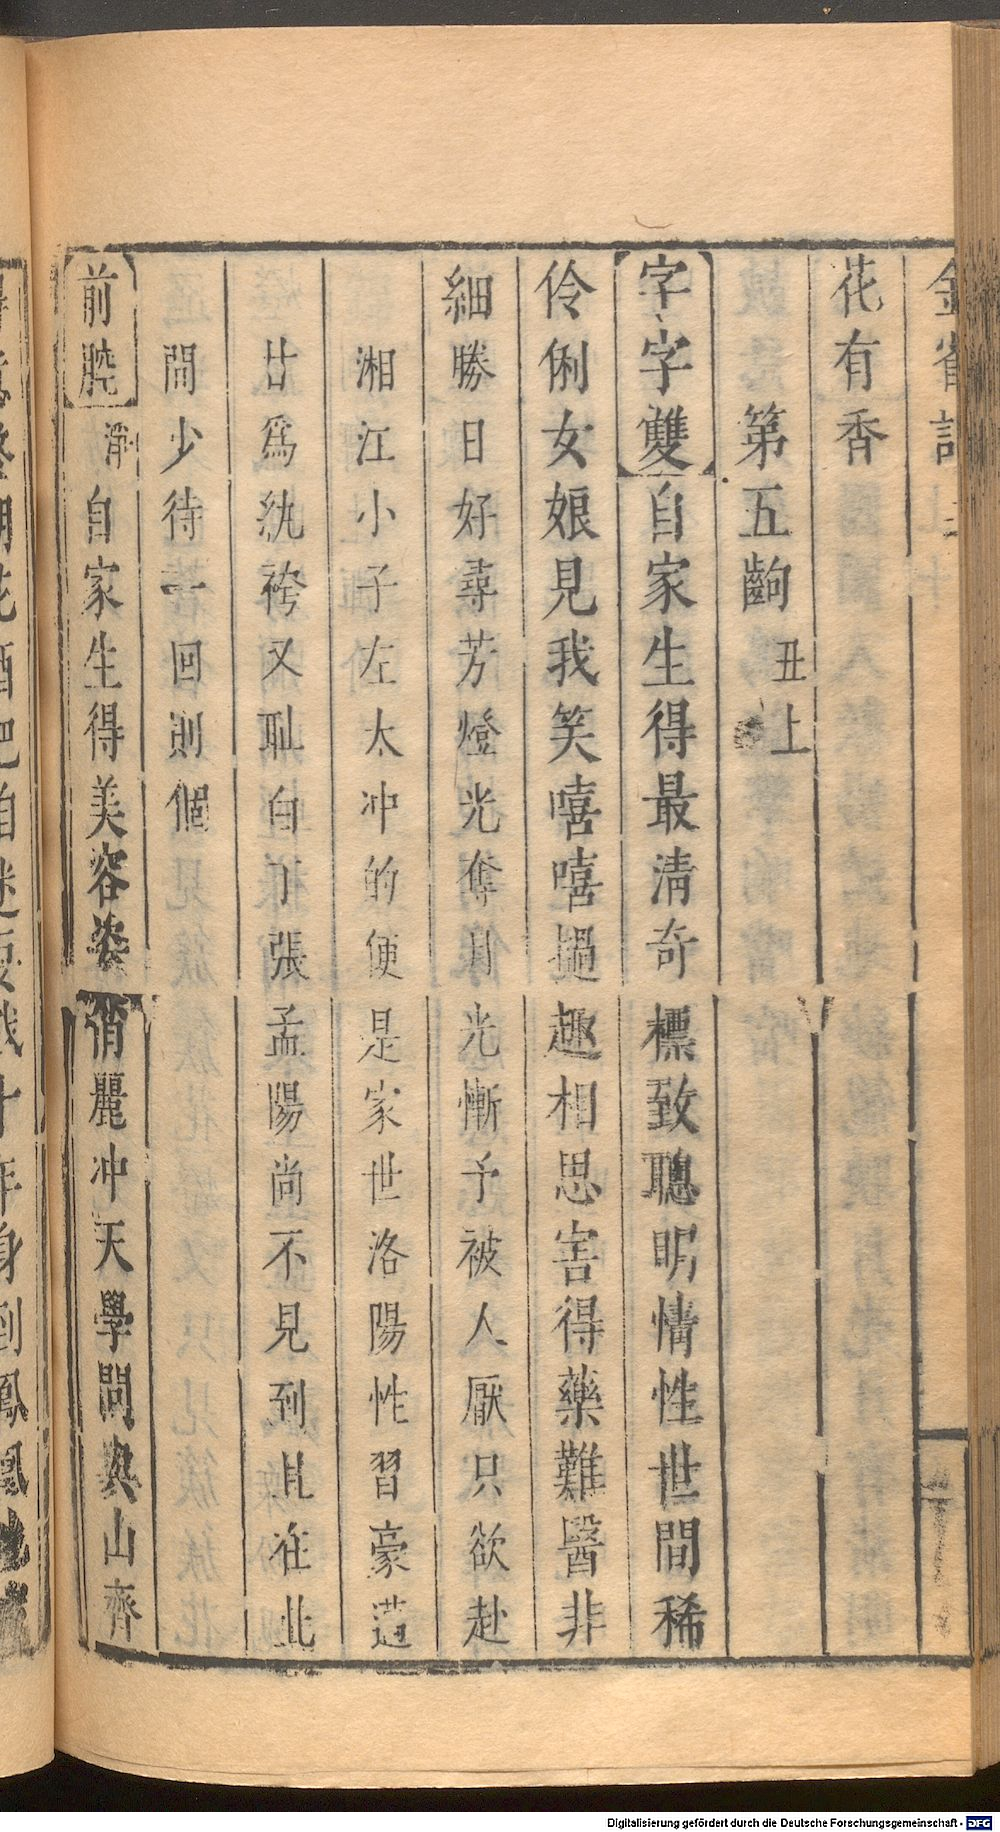 金雀記上
花有香
第五齣 丑上
字字雙 自家生得最清奇標致聰明情性世間稀
伶俐女娘見我笑嘻嘻搵趣相思害得藥難醫非
細勝日好尋芳燈光奪月光慚予被人厭只欲赴
湘江小子左太冲的便是家世洛陽性習豪
甘爲紈袴又恥白丁張孟陽尚不見到且在此
間少待一回則個
前腔 淨 自家生得美容姿俏麗冲天學問與山齊
Digitalisierung gefördert durch die Deutsche Forschungsgemeinschaft - DFG